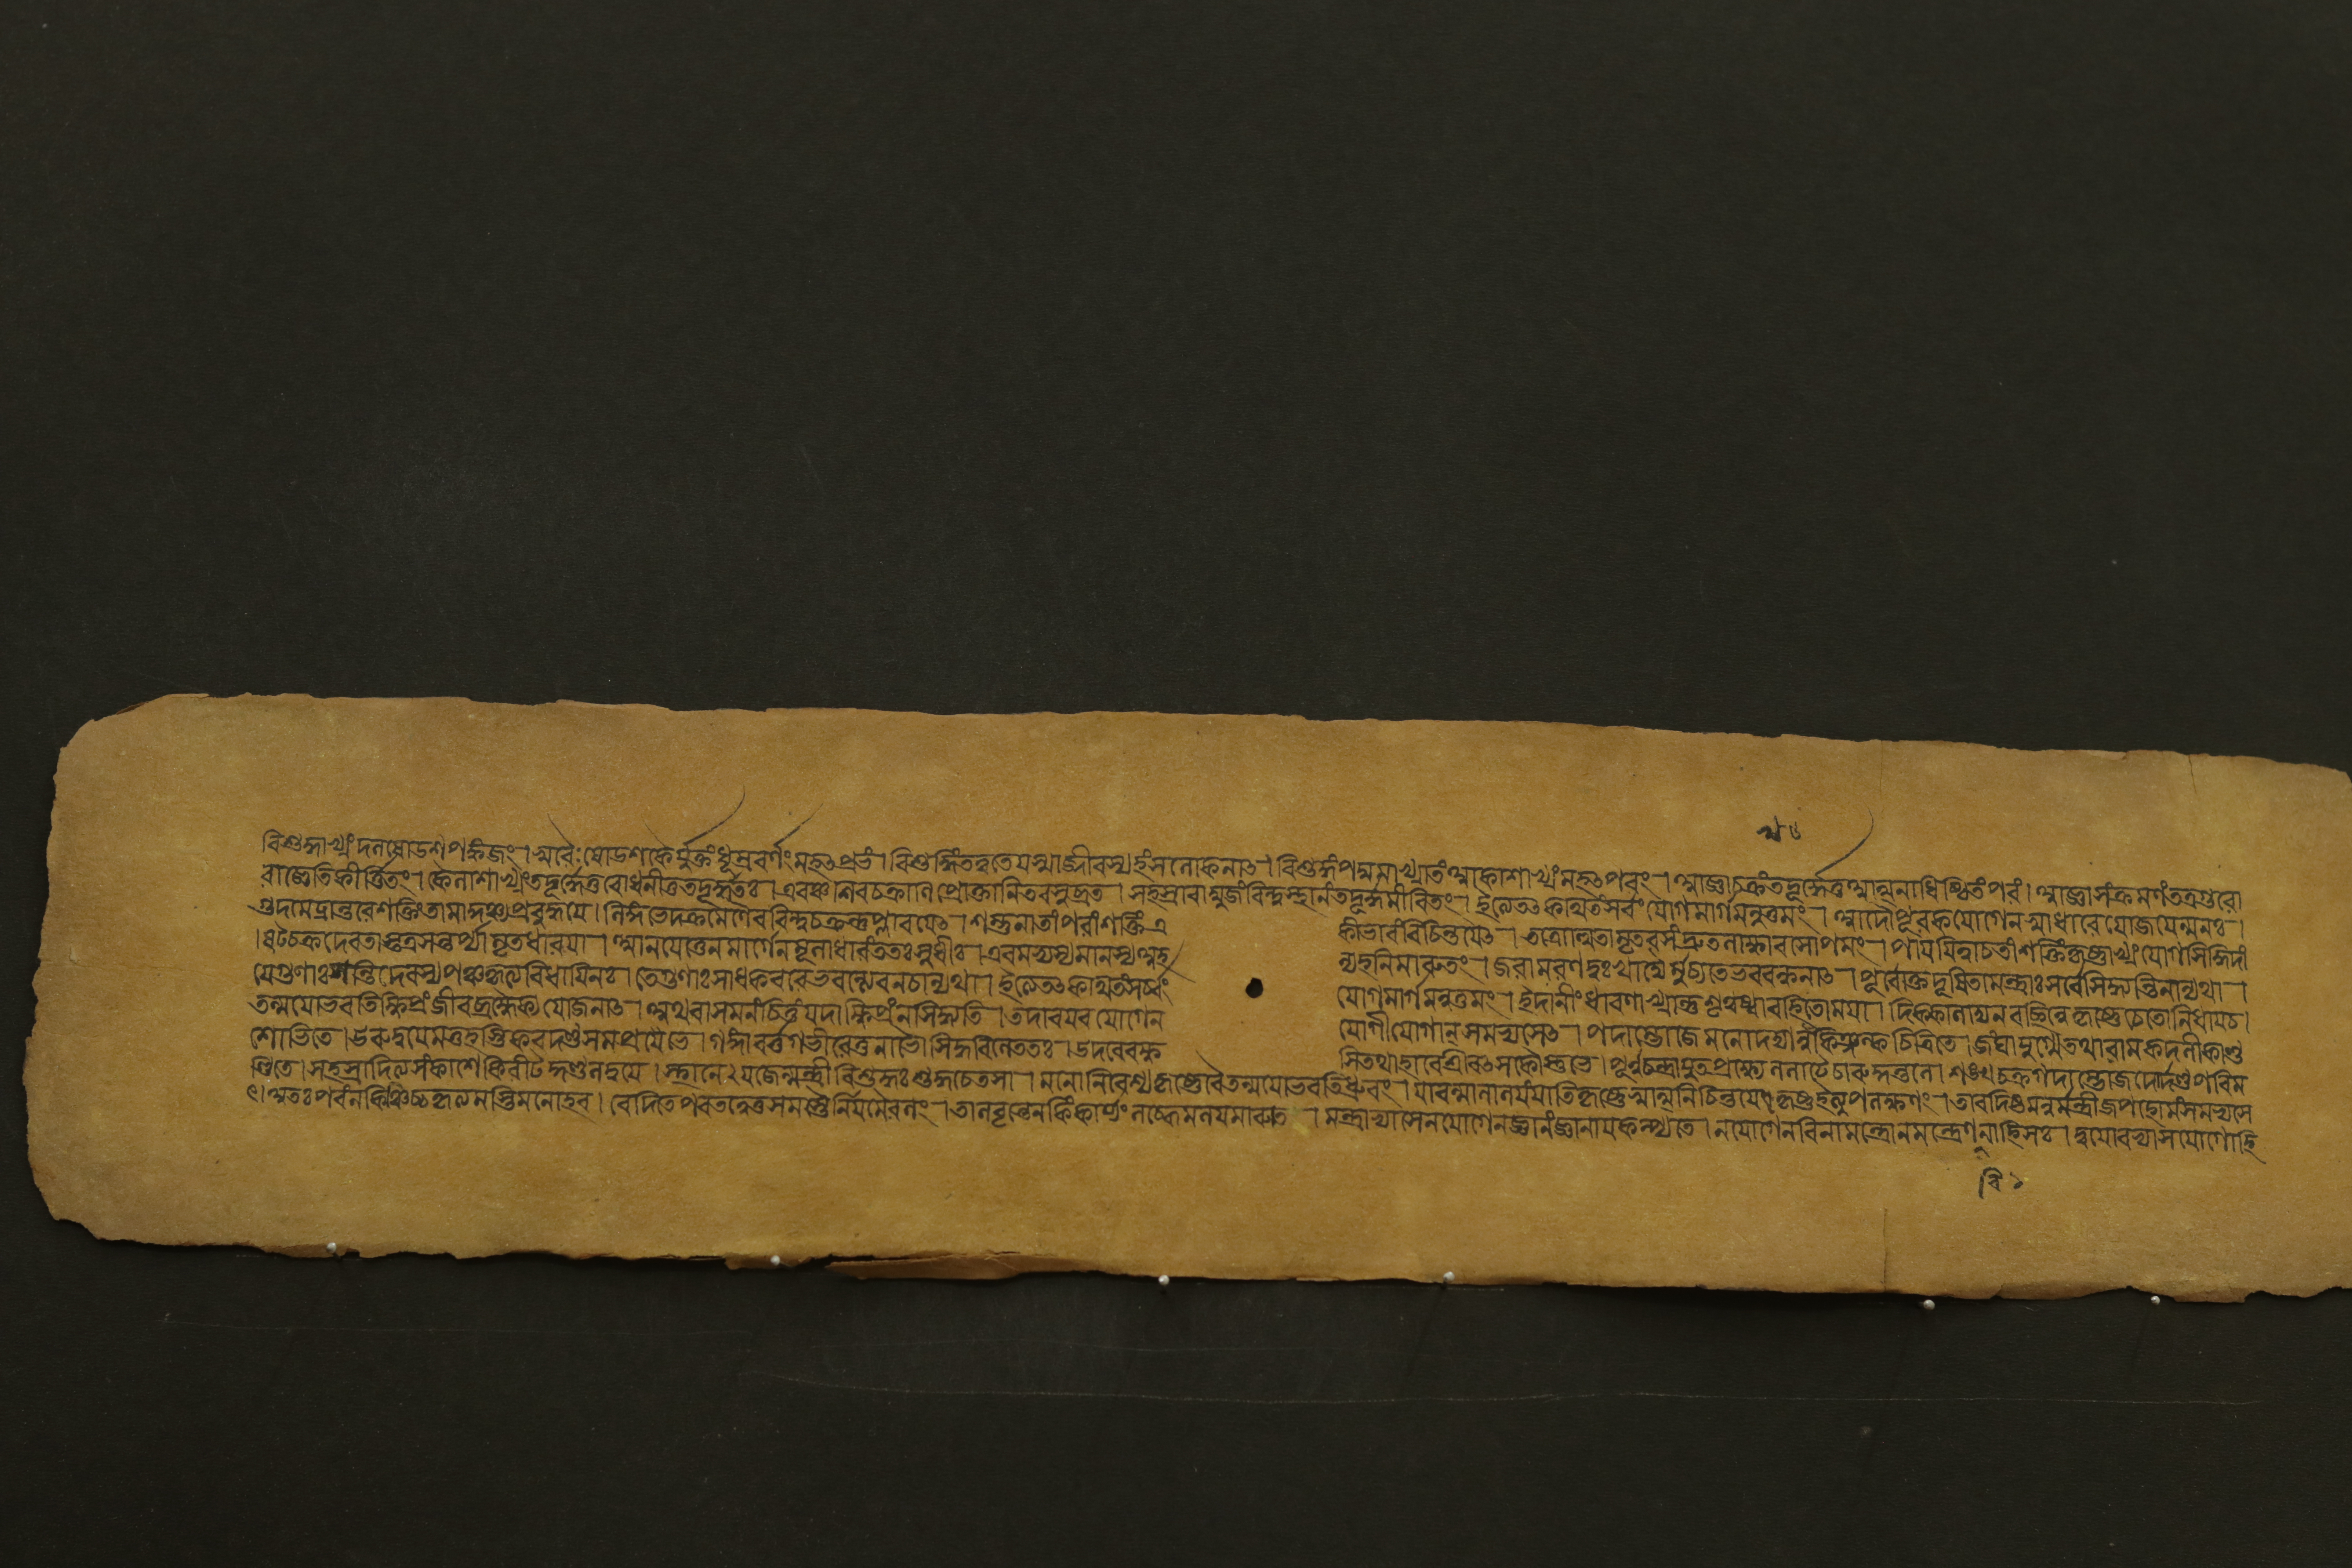 বিশুদ্ধাখ্যং দলষোডশপঙ্কজং। স্বরৈঃ ষোডশকৈর্যুক্তং ধূম্রবর্ণং মহৎপ্রভং। বিশুদ্ধিং তনুতে যস্মাজ্জীবস্য হংসলোকনাৎ। বিশুদ্ধং পদ্মমাখ্যাতং আকাশাখ্যং মহৎপরং। আজ্ঞাচক্রং তদূর্দ্ধে তু আত্মনাধিষ্ঠিতং পরং। আজ্ঞাসংক্রমণং তত্র গুরো
রাজ্ঞেতি কীর্ত্তিতং। কৈলাশাখ্যং তদূর্দ্ধে তু বোধনী তু তদূর্দ্ধতঃ। এবঞ্চ শিবচক্রাণি প্রোক্তানি তব সুব্রত। সহস্রারাম্বুজং বিন্দুস্থানং তদূর্দ্ধমীরিতং। ইত্যেতৎ কথিতং সর্বং যোগমার্গমনুত্তমং। আদৌ পূরকযোগেন স্বাধারে যোজয়েন্মনঃ।
গুদমেঢ্রান্তরে শক্তিং তামাকুঞ্চ্য প্রবুদ্ধয়ে। লিঙ্গভেদক্রমেণৈব বিন্দুচক্রন্তু প্রাপয়েৎ। শম্ভুনা তাং পরাং শক্তিং এ
কীভাবং বিচিন্তয়েৎ। তত্রোত্থিতামৃতরসং দ্রুতলাক্ষারসোপমং। পায়য়িত্বা চ তাং শক্তিং কৃষ্ণাখ্যাং যোগসিদ্ধিদাং
। ষট্চক্রদেবতাস্তত্র সন্তর্প্যামৃতধারয়া। আনয়েত্তেন মার্গেণ মূলাধারং ততঃ সুধীঃ। এবমভ্যস্যমানস্য অহ
ন্যহনি মারুতং। জরামরণদুঃখাদ্যৈর্মুচ্যতে ভববন্ধনাৎ। পূর্বোক্তদূষিতা মন্ত্রাঃ সর্বে সিদ্ধ্যন্তি নান্যথা।
যে গুণাঃ সন্তি দেবস্য পঞ্চকৃত্যবিধায়িনঃ। তে গুণাঃ সাধকবরে ভবন্ত্যেব ন চান্যথা। ইত্যেতৎ কথিতং সর্বং
যোগমার্গমনুত্তমং। ইদানীং ধারণাখ্যান্তু শৃণুষ্বাবহিতো ময়া। দিক্কালাদ্যনবচ্ছিন্নে কৃষ্ণে চেতো নিধায় চ।
তন্ময়ো ভবতি ক্ষিপ্রং জীবব্রহ্মৈক্যযোজনাৎ। অথবা সমলং চিত্তং যদা ক্ষিপ্রং ন সিদ্ধ্যতি। তদাবয়বযোগেন
যোগী যোগান্ সমভ্যসেৎ। পদাম্ভোজে মনো দদ্যান্নখকিঞ্জল্কচিত্রিতে। জঙ্ঘাযুগ্মে তথা রামকদলীকাণ্ড
শোভিতে। ঊরুদ্বয়ে মত্তহস্তিকরদণ্ডসমপ্রভে। গঙ্গাবর্ত্তগভীরে তু নাভৌ সিদ্ধবিলে ততঃ। উদরে বক্ষ
সি তথা হারে শ্রীবৎসকৌস্তুভে। পূর্ণচন্দ্রাযুতপ্রখ্যে ললাটে চারুকুন্তলে। শঙ্খচক্রগদাম্ভোজদোর্দণ্ডপরিম
ণ্ডিতে। সহস্রাদিত্যসংকাশে কিরীটকুণ্ডলদ্বয়ে। স্থানে ২ যজেন্মন্ত্রী বিশুদ্ধঃ শুদ্ধচেতসা। মনো নিবেশ্য কৃষ্ণে বৈ তন্ময়ো ভবতি ধ্রুবং। যাবন্মনো লয়ং যাতি কৃষ্ণে স্বাত্মনি চিন্ময়ে। তাবদিষ্টমনুং মন্ত্রী জপহোমং সমভ্যসে
ৎ। অতঃপরং ন কিঞ্চিচ্চ কৃত্যমস্তি মনোহর। বিদিতে পরতত্ত্বে তু সমস্তৈর্নিয়মৈরলং। তালবৃন্তেন কিং কার্য্যং লব্ধে মলয়মারুতে। মন্ত্রাভ্যাসেন যোগেন জ্ঞানং জ্ঞানায় কল্প্যতে। ন যোগেন বিনা মন্ত্রো ন মন্ত্রেণ বিনা হি সঃ। দ্বয়োরভ্যাসযোগো হি
বি ১